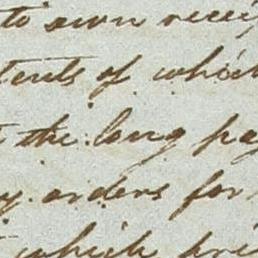 to own recei
tents of which
the long pa
y orders for
which pri